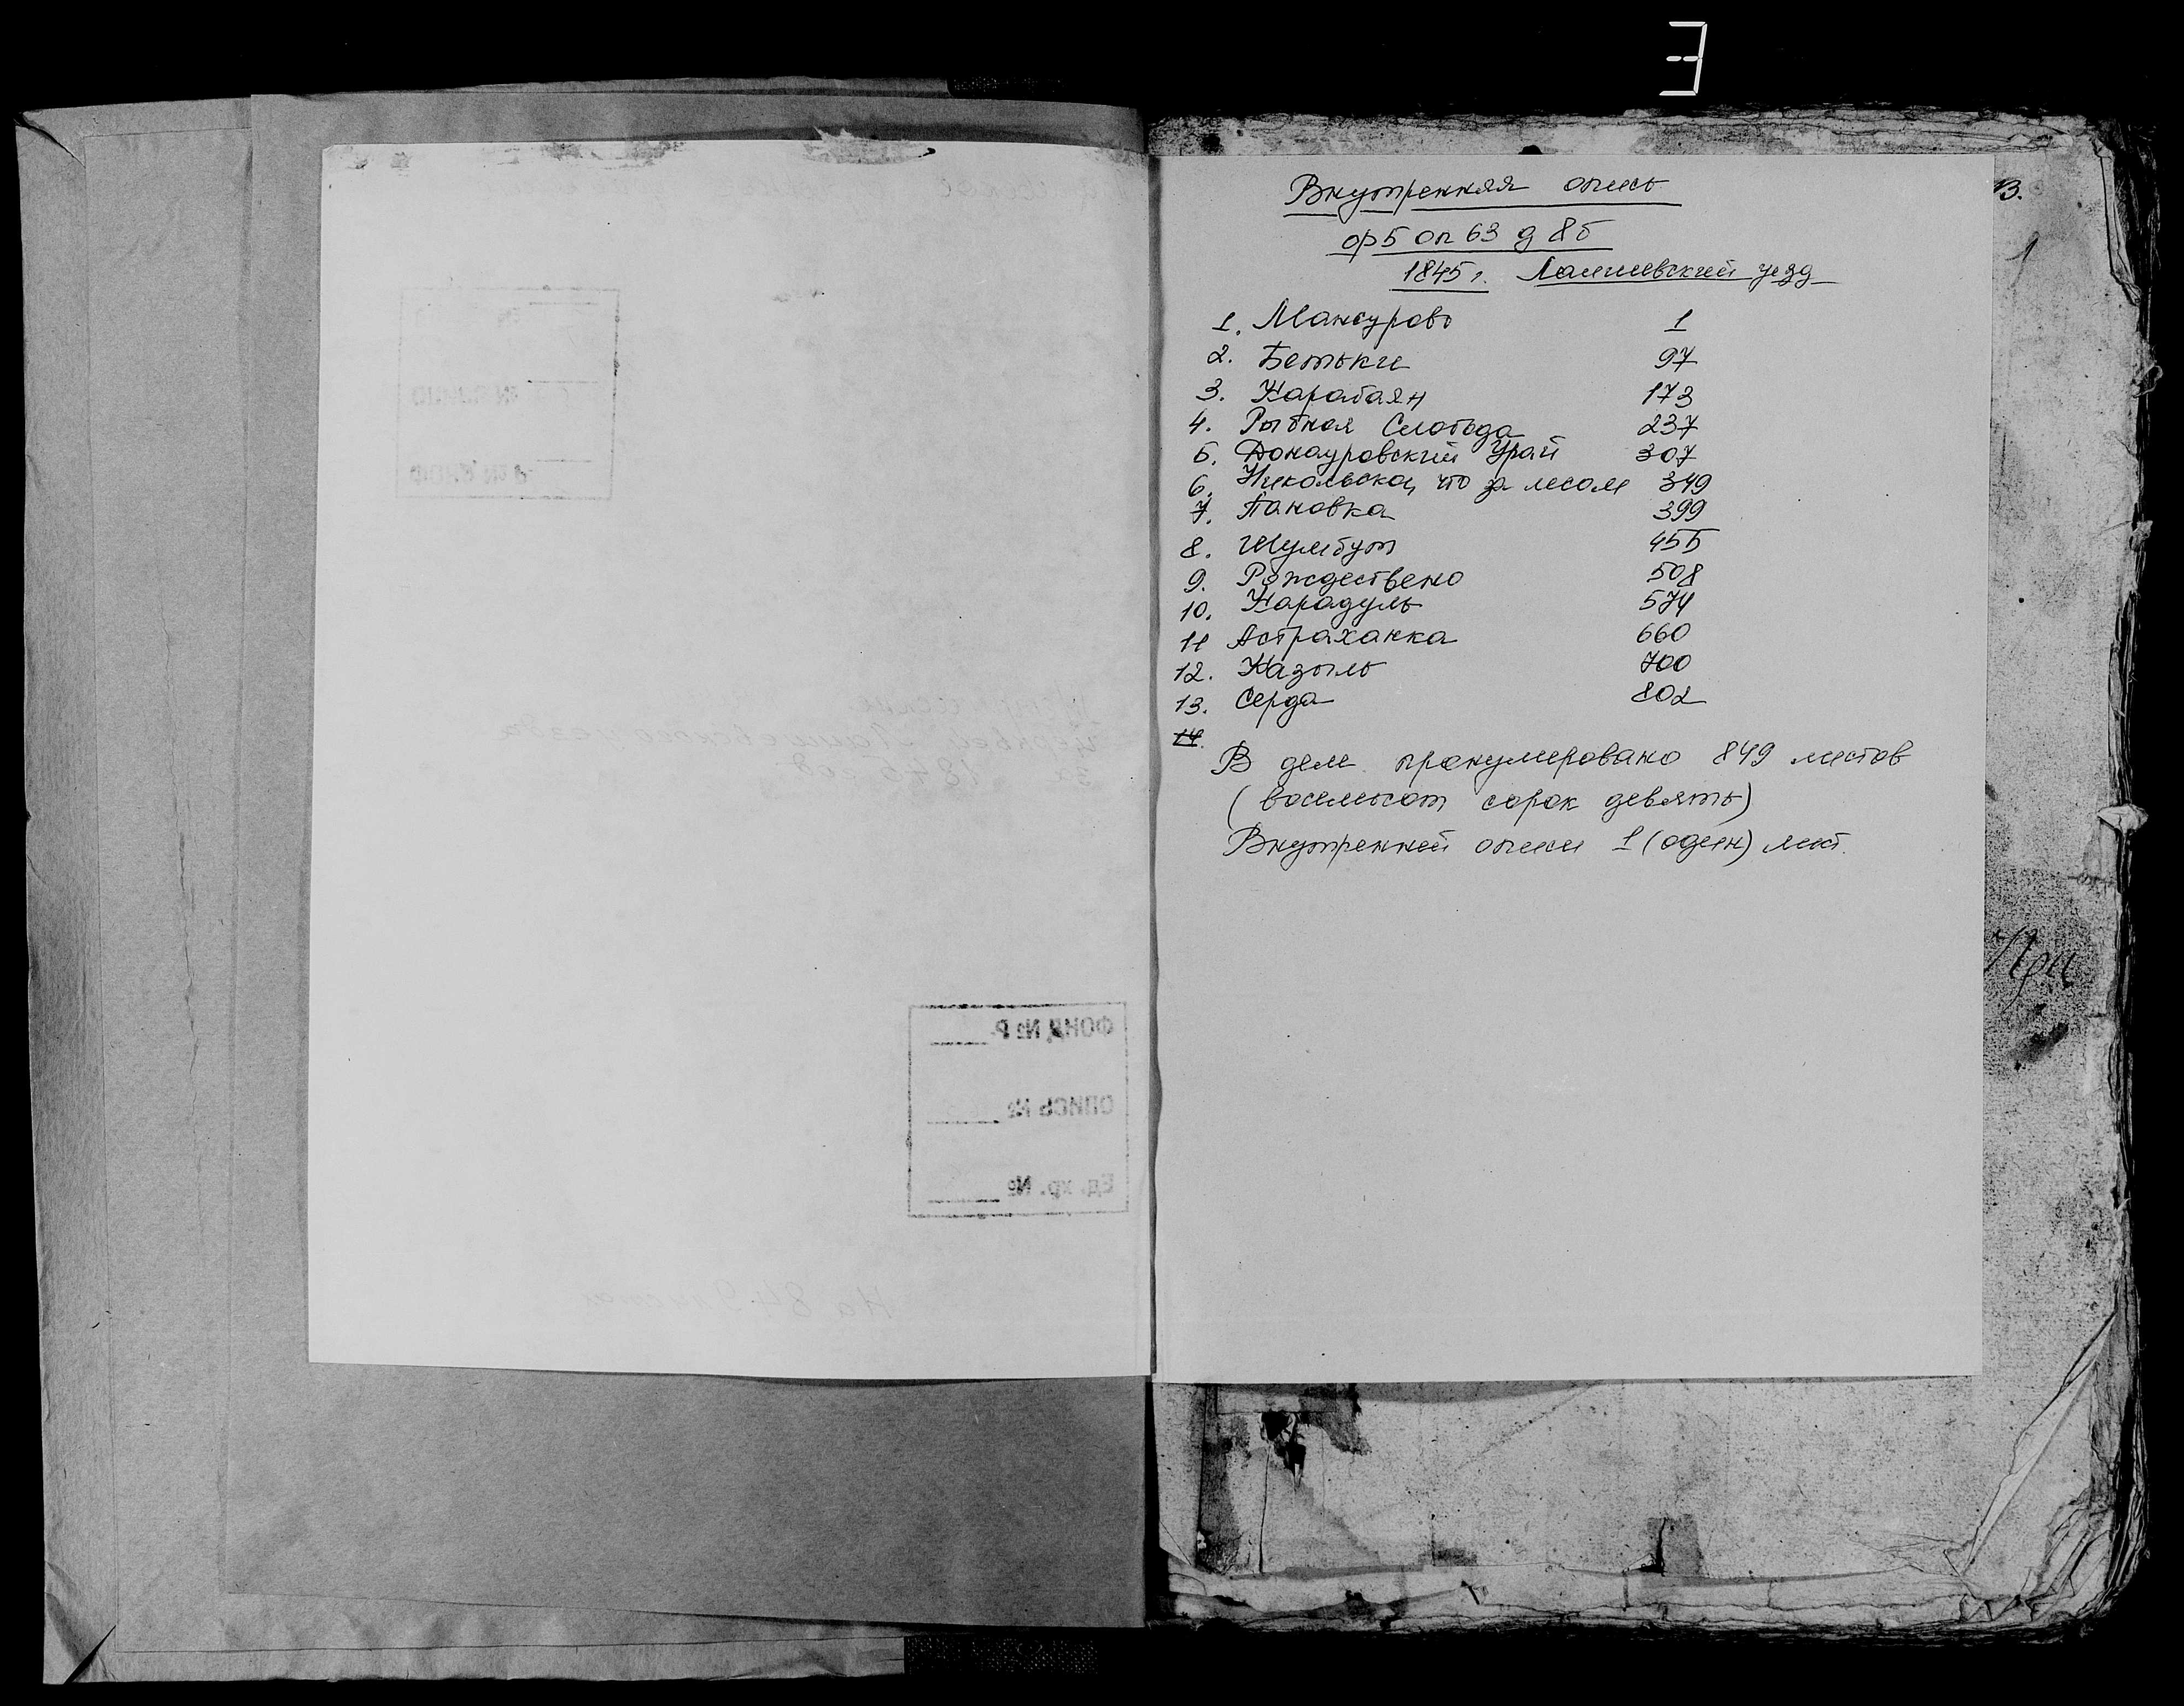 3
Внутренняя опись
ф 5 оп 63 д 8б
1845 г. Лаишевский уезд
1. Мансурово 1
2. Бетьки 97
3. Карабаян 173
4. Рыбная Слобода 237
5. Донауровский Урай 307
6. Никольское, что за лесом 349
7. Пановка 399
8. Шумбут 455
9. Рождествено 508
10. Карадуль 574
11 Астраханка 660
12. Казыль 700
13. Серда 802
14.
В деле пронумеровано 849 листов
(восемьсот сорок девять)
Внутренней описи 1 (один) лист.
В.
1
При
ФОНД № Р
ОПИСЬ №
Ед. хр. №
На 849 листах